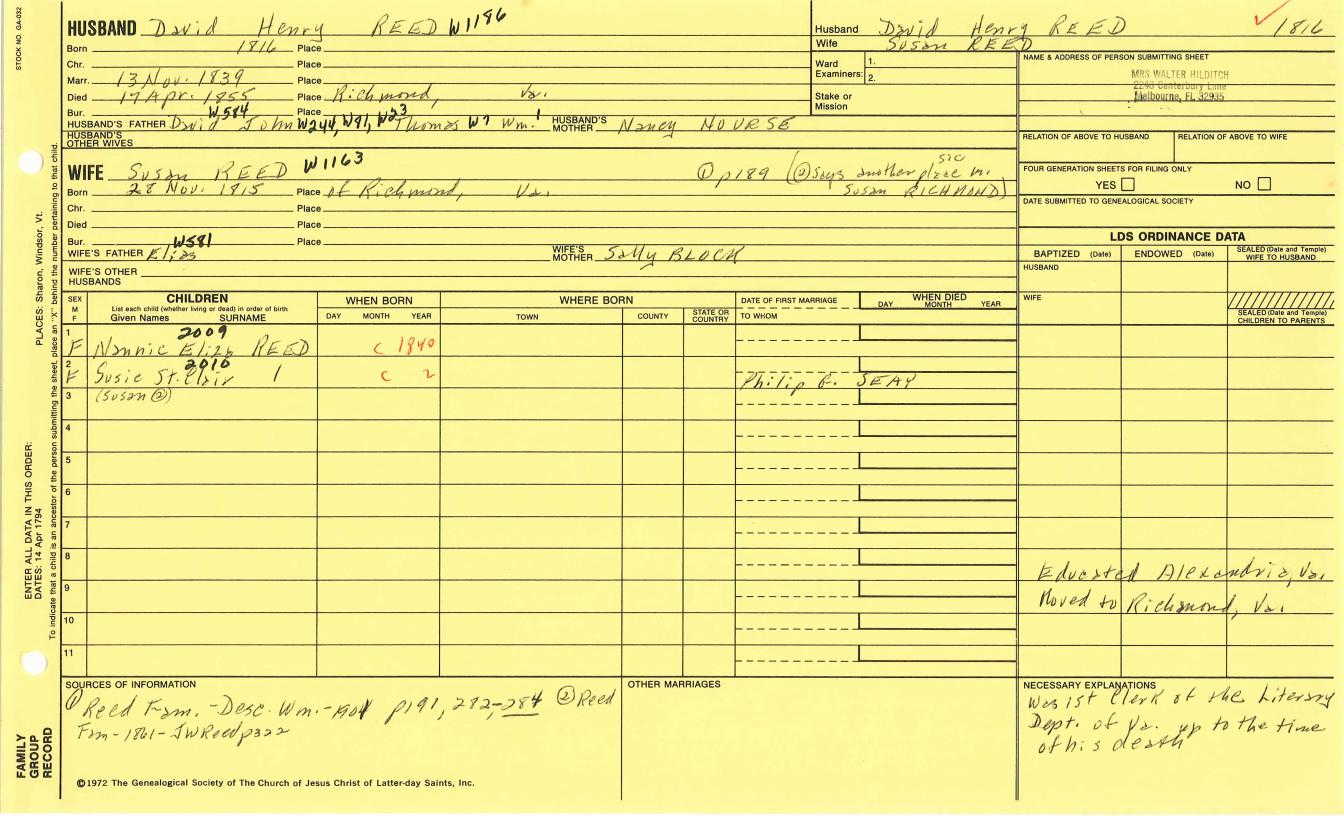 STOCK NO. GA-032
HUSBAND David Henry REED W1186
Born 1816 Place
Chr. Place
Marr. 13 Nov. 1839 Place
Died 17 Apr. 1855 Place Richmond, Va.
Bur. Place
W584
HUSBAND'S FATHER David John W244, W91, W23 Thomas W7 Wm.¹ HUSBAND'S MOTHER Nancy NOURSE
HUSBAND'S OTHER WIVES
Husband David Henry REED 1816
Wife Susan REED
Ward Examiners: 1.
2.
Stake or Mission
NAME & ADDRESS OF PERSON SUBMITTING SHEET
MRS WALTER HILDITCH
2240 Canterbury Lane
Melbourne, FL 32935
RELATION OF ABOVE TO HUSBAND RELATION OF ABOVE TO WIFE
FOUR GENERATION SHEETS FOR FILING ONLY
YES NO
DATE SUBMITTED TO GENEALOGICAL SOCIETY
WIFE Susan REED W1163
① p189 (② Says another place m. Susan RICHMOND) sic
Born 28 Nov. 1815 Place of Richmond, Va.
Chr. Place
Died Place
Bur. Place
W581
WIFE'S FATHER Elias WIFE'S MOTHER Sally BLOCK
WIFE'S OTHER HUSBANDS
LDS ORDINANCE DATA
BAPTIZED (Date) ENDOWED (Date) SEALED (Date and Temple) WIFE TO HUSBAND
HUSBAND
WIFE
SEALED (Date and Temple) CHILDREN TO PARENTS
SEX M F
CHILDREN
List each child (whether living or dead) in order of birth
Given Names SURNAME
WHEN BORN
DAY MONTH YEAR
WHERE BORN
TOWN COUNTY STATE OR COUNTRY
DATE OF FIRST MARRIAGE
TO WHOM
WHEN DIED
DAY MONTH YEAR
2009
1 F Nannie Eliza REED c 1840
2010
2 F Susie St. Clair c 2 Philip E. SEAY
3 (Susan ②)
4
5
6
7
8
9
10
11
Educated Alexandria, Va.
Moved to Richmond, Va.
SOURCES OF INFORMATION
① Reed Fam. - Desc. Wm. - 1901 p191, 282-284 ② Reed
Fam - 1861 - JWReed p322
OTHER MARRIAGES
NECESSARY EXPLANATIONS
Was 1st Clerk of the Literary
Dept. of Va. up to the time
of his death
©1972 The Genealogical Society of The Church of Jesus Christ of Latter-day Saints, Inc.
FAMILY GROUP RECORD
ENTER ALL DATA IN THIS ORDER:
DATES: 14 Apr 1794
PLACES: Sharon, Windsor, Vt.
To indicate that a child is an ancestor of the person submitting the sheet, place an "X" behind the number pertaining to that child.